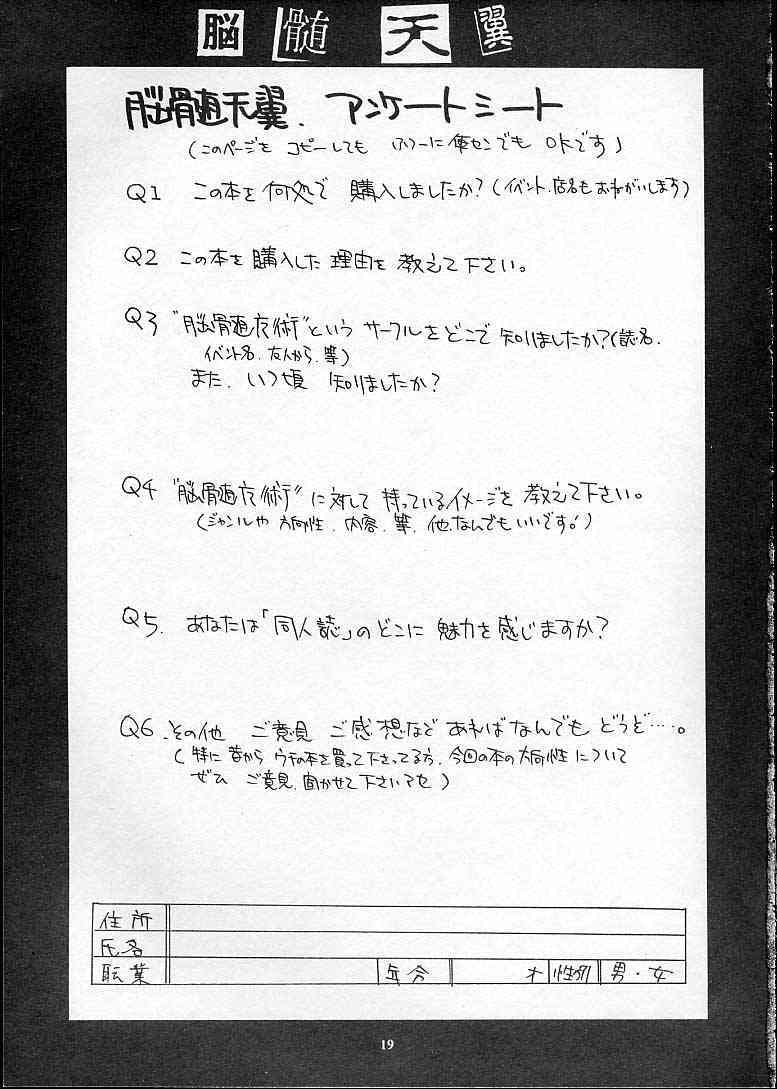 脳髄天翼
脳髄天翼. アンケートシート
(このページを コピーしても フリーに便センでも OKです)
Q1 この本を何処で 購入しましたか?(イベント.店名もおねがいします)
Q2 この本を購入した理由を教えて下さい。
Q3 "脳髄魔術"という サークルをどこで知りましたか?(誌名.
イベント名.友人から.等)
また.いつ頃 知りましたか?
Q4 "脳髄魔術"に対して 持っているイメージを教えて下さい。
(ジャンルや 方向性.内容.等.他.なんでもいいです!)
Q5. あなたは「同人誌」のどこに 魅力を感じますか?
Q6.その他 ご意見 ご感想など あればなんでも どうぞ…。
(特に 昔から ウチの本を買って下さってる方.今回の本の方向性について
ぜひ ご意見.聞かせて下さいませ)
住所
氏名
職業 年令 才 性別 男・女
19